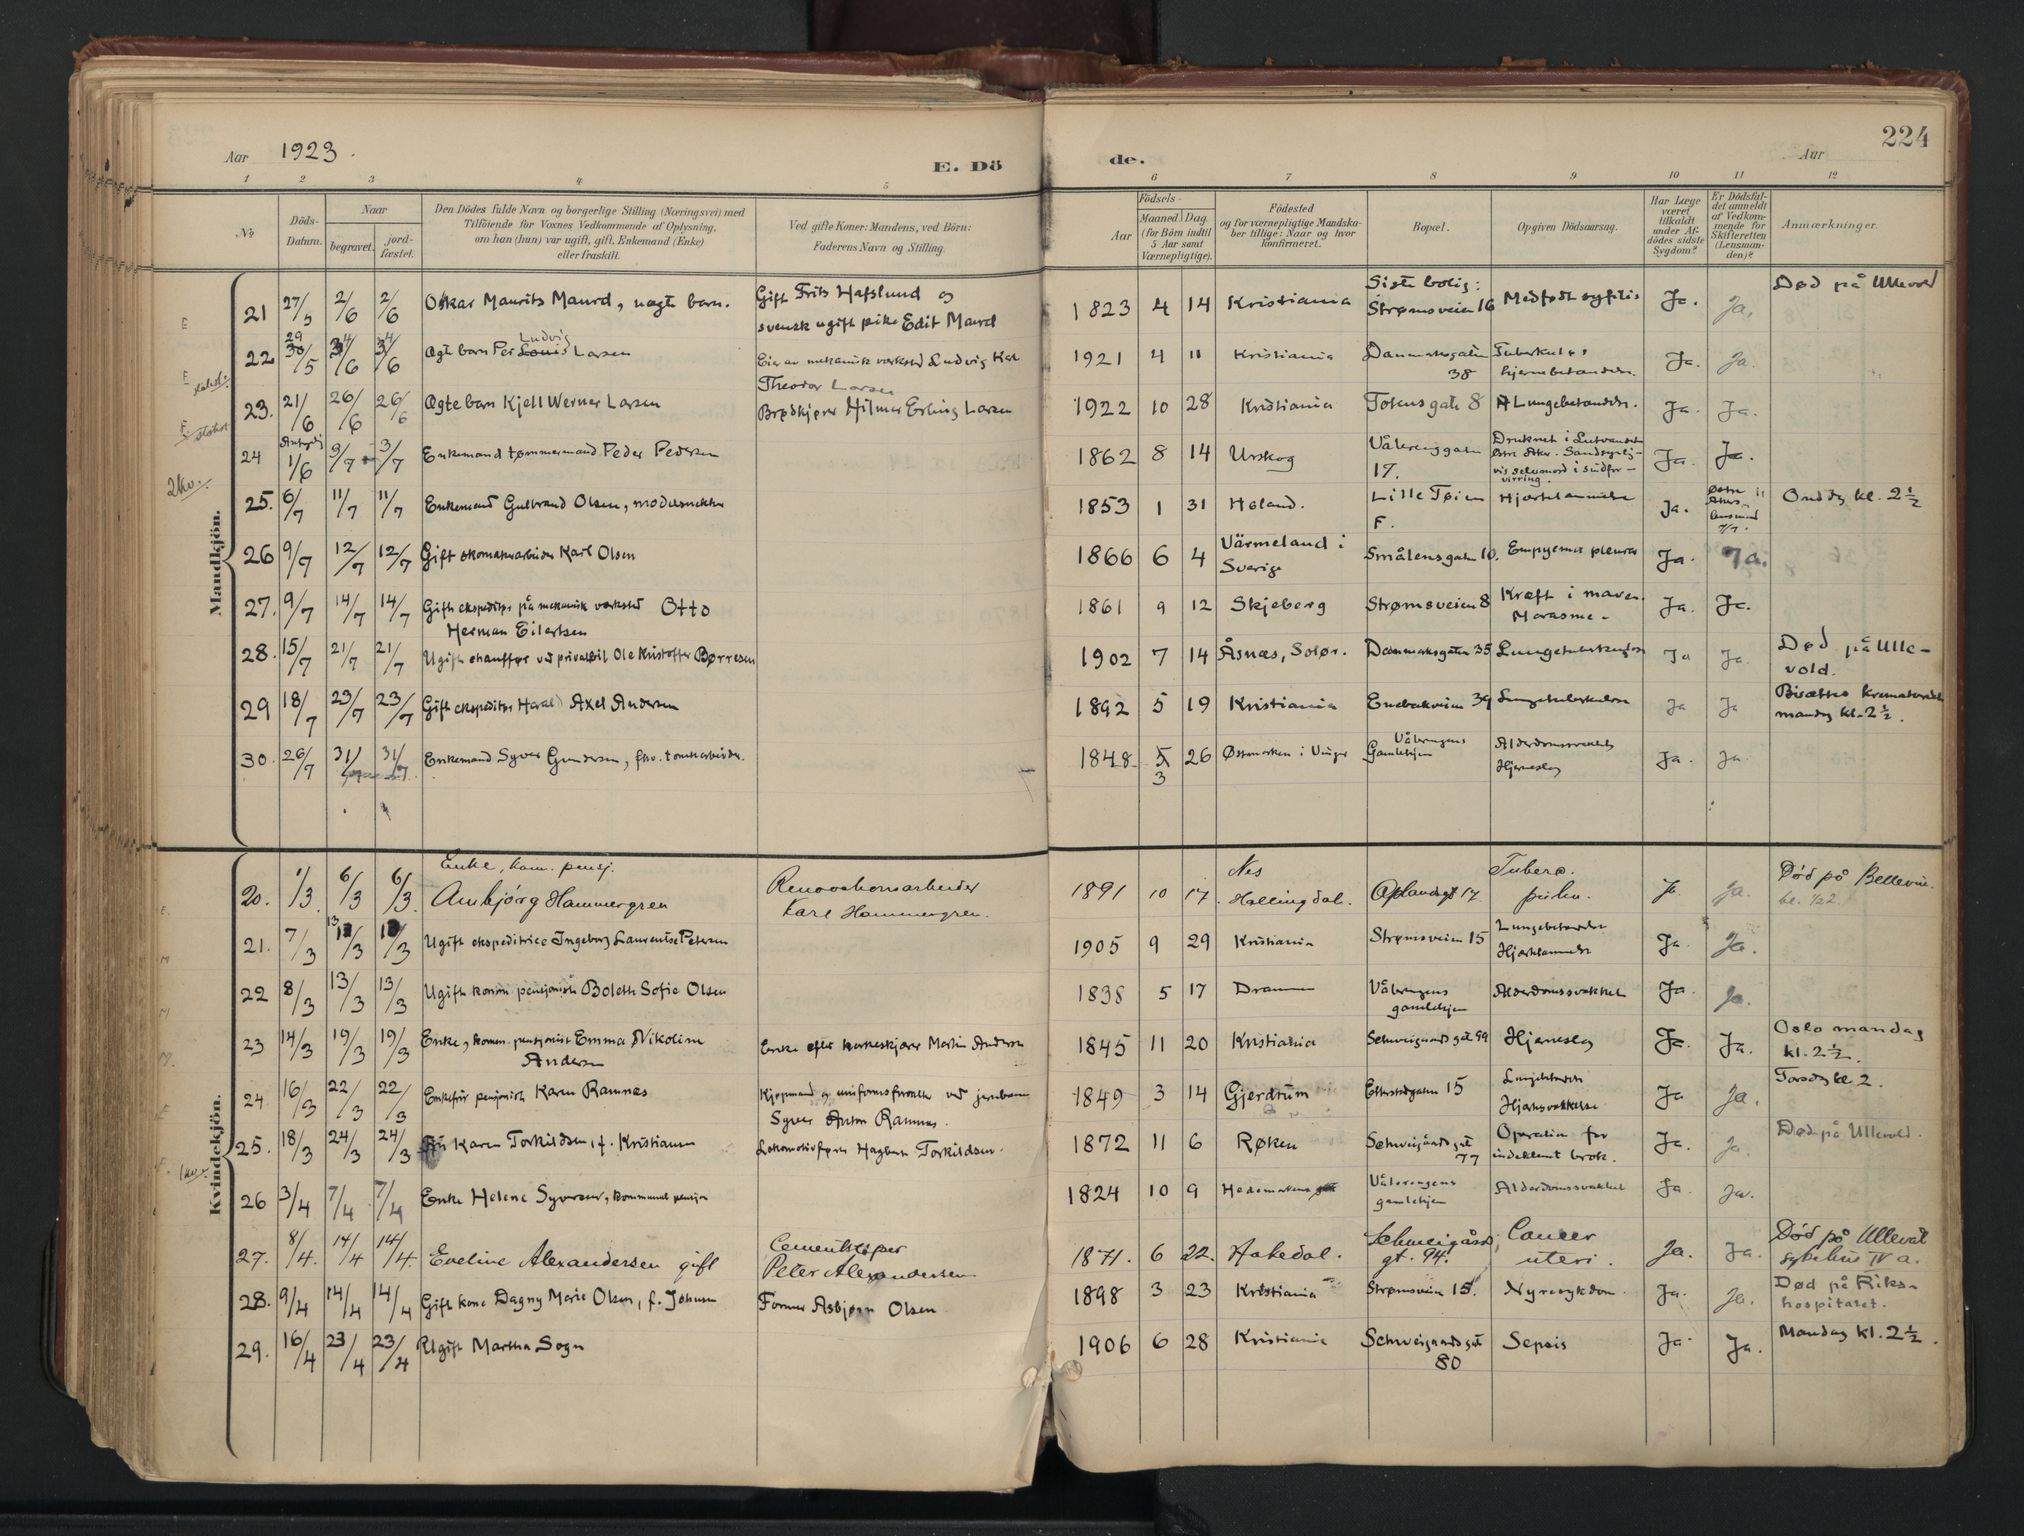 224
Aar 1923.
E. Dö
de.
Aar
1 2 3 4 5 6 7 8 9 10 11 12
No
Döds-Datum.
Naar
begravet.
jord-fæstet.
Den Dödes fulde Navn og borgerlige Stilling (Næringsvei) med
Tilföiende for Voxnes Vedkommende af Oplysning,
om han (hun) var ugift, gift, Enkemand (Enke)
eller fraskilt.
Ved gifte Koner: Mandens, ved Börn:
Faderens Navn og Stilling.
Födsels-
Aar
Maaned Dag.
(for Börn indtil
5 Aar samt
Værnepligtige).
Födested
og for værnepligtige Mandska-
ber tillige: Naar og hvor
konfirmeret.
Bopæl.
Opgiven Dödsaarsag.
Har Læge
været
tilkaldt
under Af-
dödes sidste
Sygdom?
Er Dödsfal-
det anmeldt
af Vedkom-
mende for
Skifteretten
(Lensman-
den)?
Anmærkninger.
Mandkjön.
21 27/5 2/6 2/6 Oskar Maurits Maurd, uægte barn. Gift Frits Hafslund og
svensk ugift pike Edit Maurd 1823 4 14 Kristiania Siste bolig:
Strømsveien 16 Medfødt syfilis Ja. Ja. Død på Ullevold
22 29/5 6 6 Ægte barn Per Ludvig Larsen Eier av mekanisk værksted Ludvig Karl
Theodor Larsen 1921 4 11 Kristiania Danmarksgaten
38 Tuberkuløs
hjernebetændelse. Ja. Ja.
23. 21/6 26/6 26/6 Ægte barn Kjell Werner Larsen Brødkjører Hilmer Erling Larsen 1922 10 28 Kristiania Totensgate 8 Lungebetændelse. Ja. Ja.
24 1/6 9/7 3/7 Enkemand tømmermand Peder Pedersen 1862 8 14 Urskog Vålerenggaten
17. Druknet i Lutvandet
Østre Aker. Sandsynlig-
vis selvmord i sindfor-
virring. Ja. Ja.
2 kv.
25. 6/7 11/7 11/7 Enkemand Gulbrand Olsen, modelsnekker 1853 1 31 Høland. Lille Tøien
F. Hjertelammelse Ja. Østre
Akers
lensmand
7/7. Onsdag kl. 2 1/2
26 9/7 12/7 12/7 Gift skomakerarbeider Karl Olsen 1866 6 4 Värmeland i
Sverige Smålensgaten 10. Empyema pleurae Ja. Ja.
27. 9/7 14/7 14/7 Gift ekspeditør på mekanisk værksted Otto
Herman Eilertsen 1861 9 12 Skjeberg Strømsveien 8 Kræft i maven.
Marasme. Ja. Ja.
28. 15/7 21/7 21/7 Ugift chauffør ved privatbil Ole Kristoffer Børresen 1902 7 14 Åsnæs, Solør. Danmarksgaten 35 Lungetuberkulose Ja Ja. Død på Ulle-
vold.
29 18/7 23/7 23/7 Gift ekspeditør Harald Axel Andersen 1892 5 19 Kristiania Enebakveien 39 Lungetuberkulose Ja Ja Bisættes Krematoriet
mandag kl. 2 1/2.
30. 26/7 31/7 31/7 Enkemand Syver Gundersen, fhv. tomtearbeider. 1848 3 26 Østmarken i Vinger Vålerengens
Gamlehjem Alderdomssvakhet
Hjerneslag Ja. Ja.
Kvindekjön.
20. 1/3 6/3 6/3. Enke, kom. pensj.
Ambjörg Hammergren Renovationsarbeider
Karl Hammergren. 1891 10 17. Nes
Hallingdal. Oplandsgt 17. Tuberc.
pulm. Ja Ja. Död på Bellevue.
21. 7/3 13/3 /3 Ugift ekspeditrice Ingeborg Laurentse Petersen 1905 9 29 Kristiania Strømsveien 15 Lungebetændelse
Hjertelammelse Ja Ja.
22 8/3 13/3 13/3 Ugift komm pensjonist Bolette Sofie Olsen 1838 5 17 Drammen Vålerengens
gamlehjem Alderdomssvakhet Ja. Ja.
23 14/3 19/3 19/3 Enke, komm. pensjonist Emma Nikoline
Andersen Enke efter Martin Andersen 1845 11 20 Kristiania Schweigaardsgat 99 Hjerneslag Ja. Ja. Oslo mandag
kl. 2 1/2.
24 16/3 22/3 22/3 Enkefru pensjonist Karen Ramnæs Kjøpmand og uniformsforvalter ved jernbanen
Syver Anton Ramnæs. 1849 3 14 Gjerdrum Etterstadgaten 15 Lungebetændelse
Hjertesvækkelse Ja Ja. Torsdag kl 2.
1 kv.
25. 18/3 24/3 24/3 Fru Karen Torkildsen, f. Kristiansen Lokomotivfører Hagbart Torkildsen. 1872 11 6 Røken Schweigårds gat
77 Operation for
indeklemt brok. Ja. Ja. Død på Ullevold.
26 3/4 7/4 7/4 Enke Helene Syversen, kommunal pensjon 1824 10 9 Hedemarken Vålerengens
gamlehjem Alderdomssvakhet Ja. Ja.
27. 8/4. 14/4 14/4. Eveline Alexandersen gift Cementstøper
Peter Alexandersen 1871. 6 22. Hakedal. Schweigårds
gt. 94. Cancer
uteri. Ja. Ja. Död på Ullevål
sykehus IV a.
28. 9/4 14/4 14/4 Gift kone Dagny Marie Olsen, f. Johnsen Former Asbjørn Olsen 1898 3 23 Kristiania Strømsveien 15. Nyresykdom. Ja. Ja. Død på Riks-
hospitalet.
29. 16/4 23/4 23/4 Ugift Martha Sogn 1906 6 28 Kristiania Schweigaardsgat
80 Sepsis Ja Ja. Mandag kl. 2 1/2.